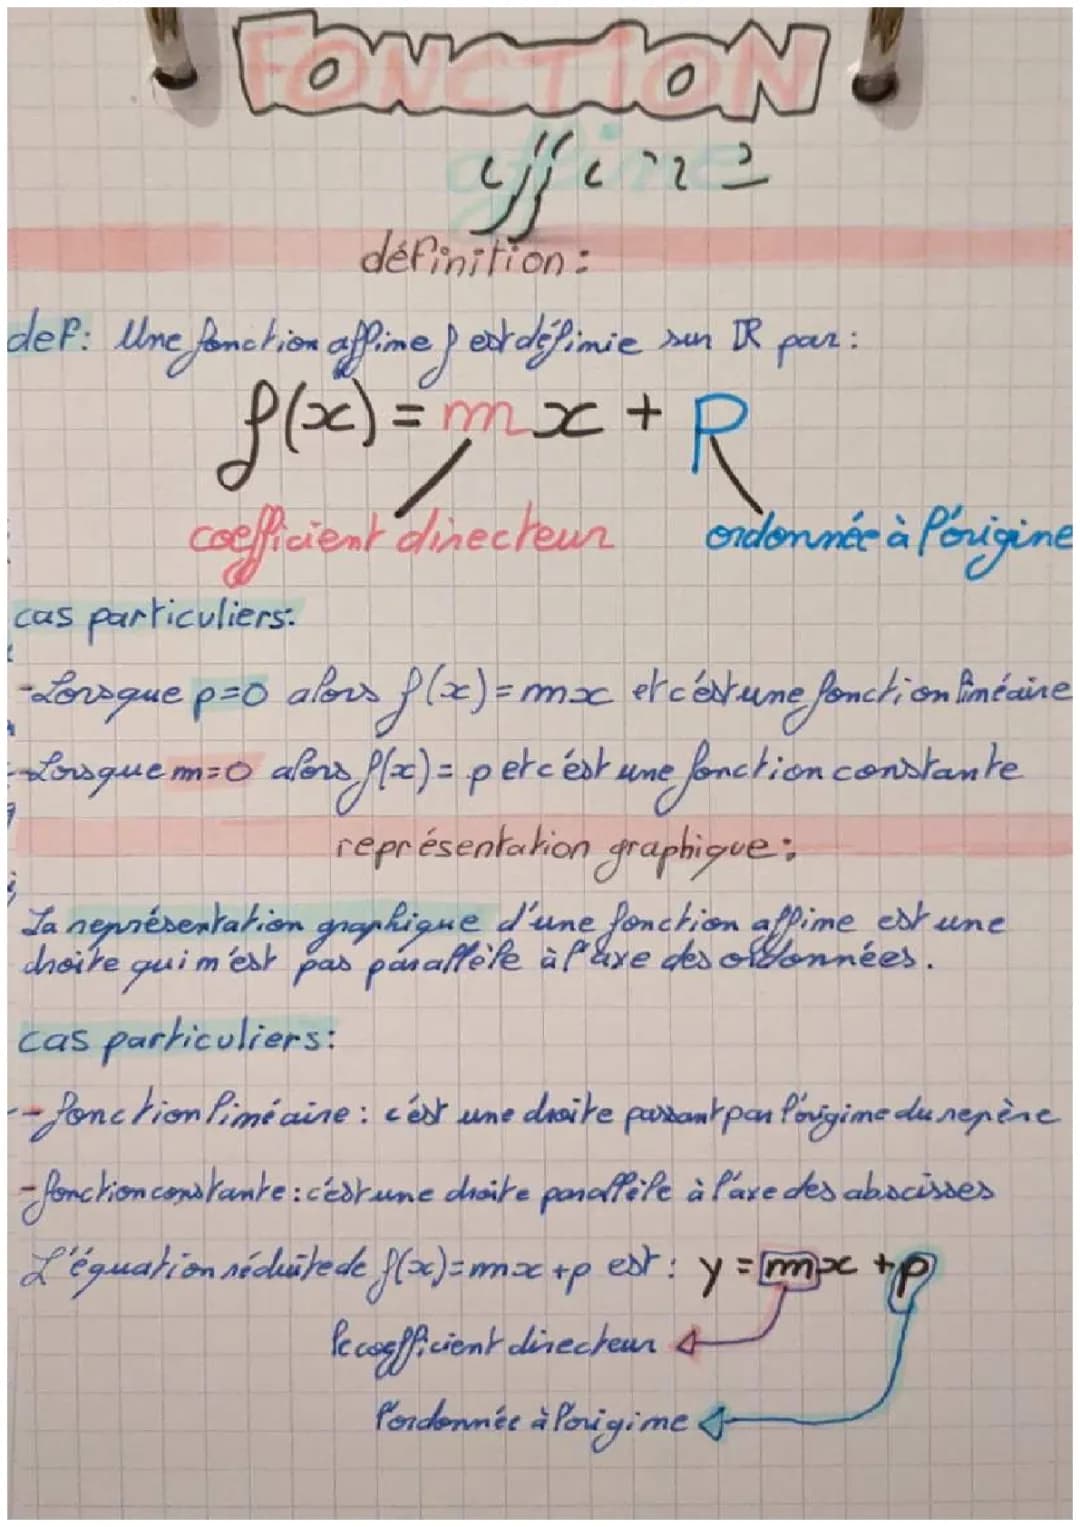 FONCTION
affine
définition :
def : Une fonction affine f est définie sur IR par :
f(x) = mx + P
coefficient directeur ordonnée à l'origine
cas particuliers:
- Lorsque p=0 alors f(x) = mx et c'est une fonction linéaire
- Lorsque m=0 alors f(x) = p et c'est une fonction constante
représentation graphique :
La représentation graphique d'une fonction affine est une
droite qui n'est pas parallèle à l'axe des ordonnées.
cas particuliers :
- fonction linéaire : c'est une droite passant par l'origine du repère
- fonction constante : c'est une droite parallèle à l'axe des abscisses
L'équation réduite de f(x)=mx+p est : y = mx + p
le coefficient directeur
l'ordonnée à l'origine